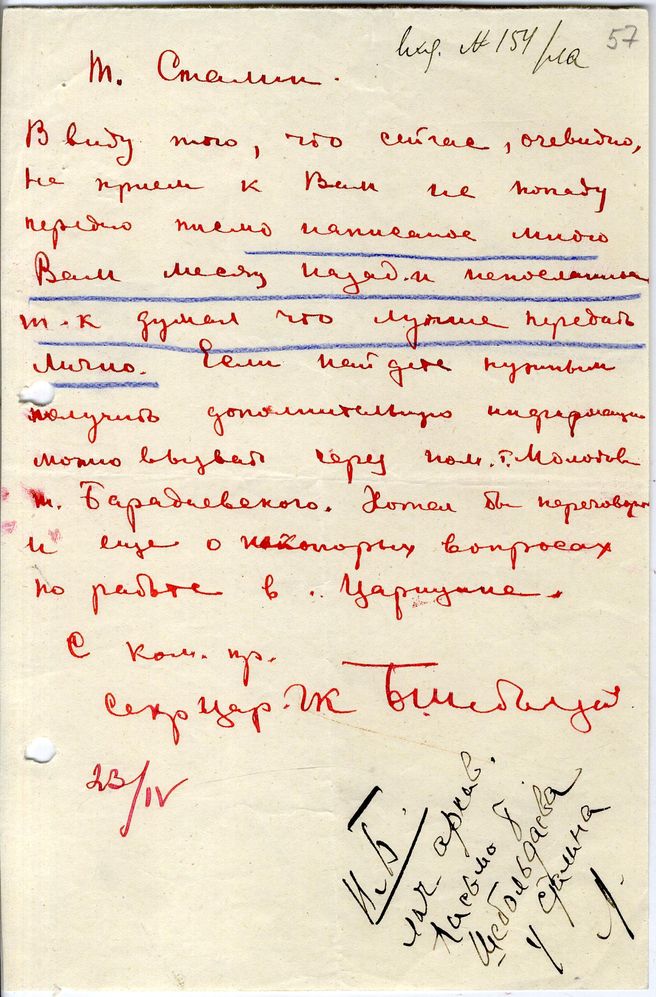 вхд. № 154/ла 57
т. Сталин.
В виду того, что сейчас, очевидно,
на прием к Вам не попаду
передаю письмо написаное мною
Вам месяц назад и непосланное
т.к думал что лучше передать
лично. Если найдете нужным
получить дополнительную информацию
можно вызвать через пом. т. Молотова
т. Бородаевского. Хотел бы переговорить
и еще о некоторых вопросах
по работе в Царицыне.
С ком. пр.
секр Цар. ГК Б Шеболдаев
23/IV
И.Б.
лич архив.
Письмо т
Шеболдаева
у Сталина